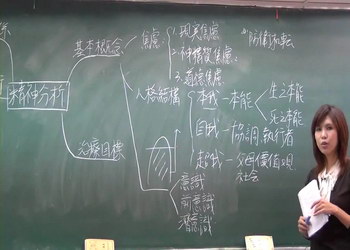 精神分析
基本概念
焦慮
1.現実焦慮
2.神精質焦慮
3.道德焦慮
"防衛机転
人格結構
本我－本能
生之本能
死之本能
自我－協調執行者
超我－父母價值观
社会
意識
前意識
潛意識
治療目標